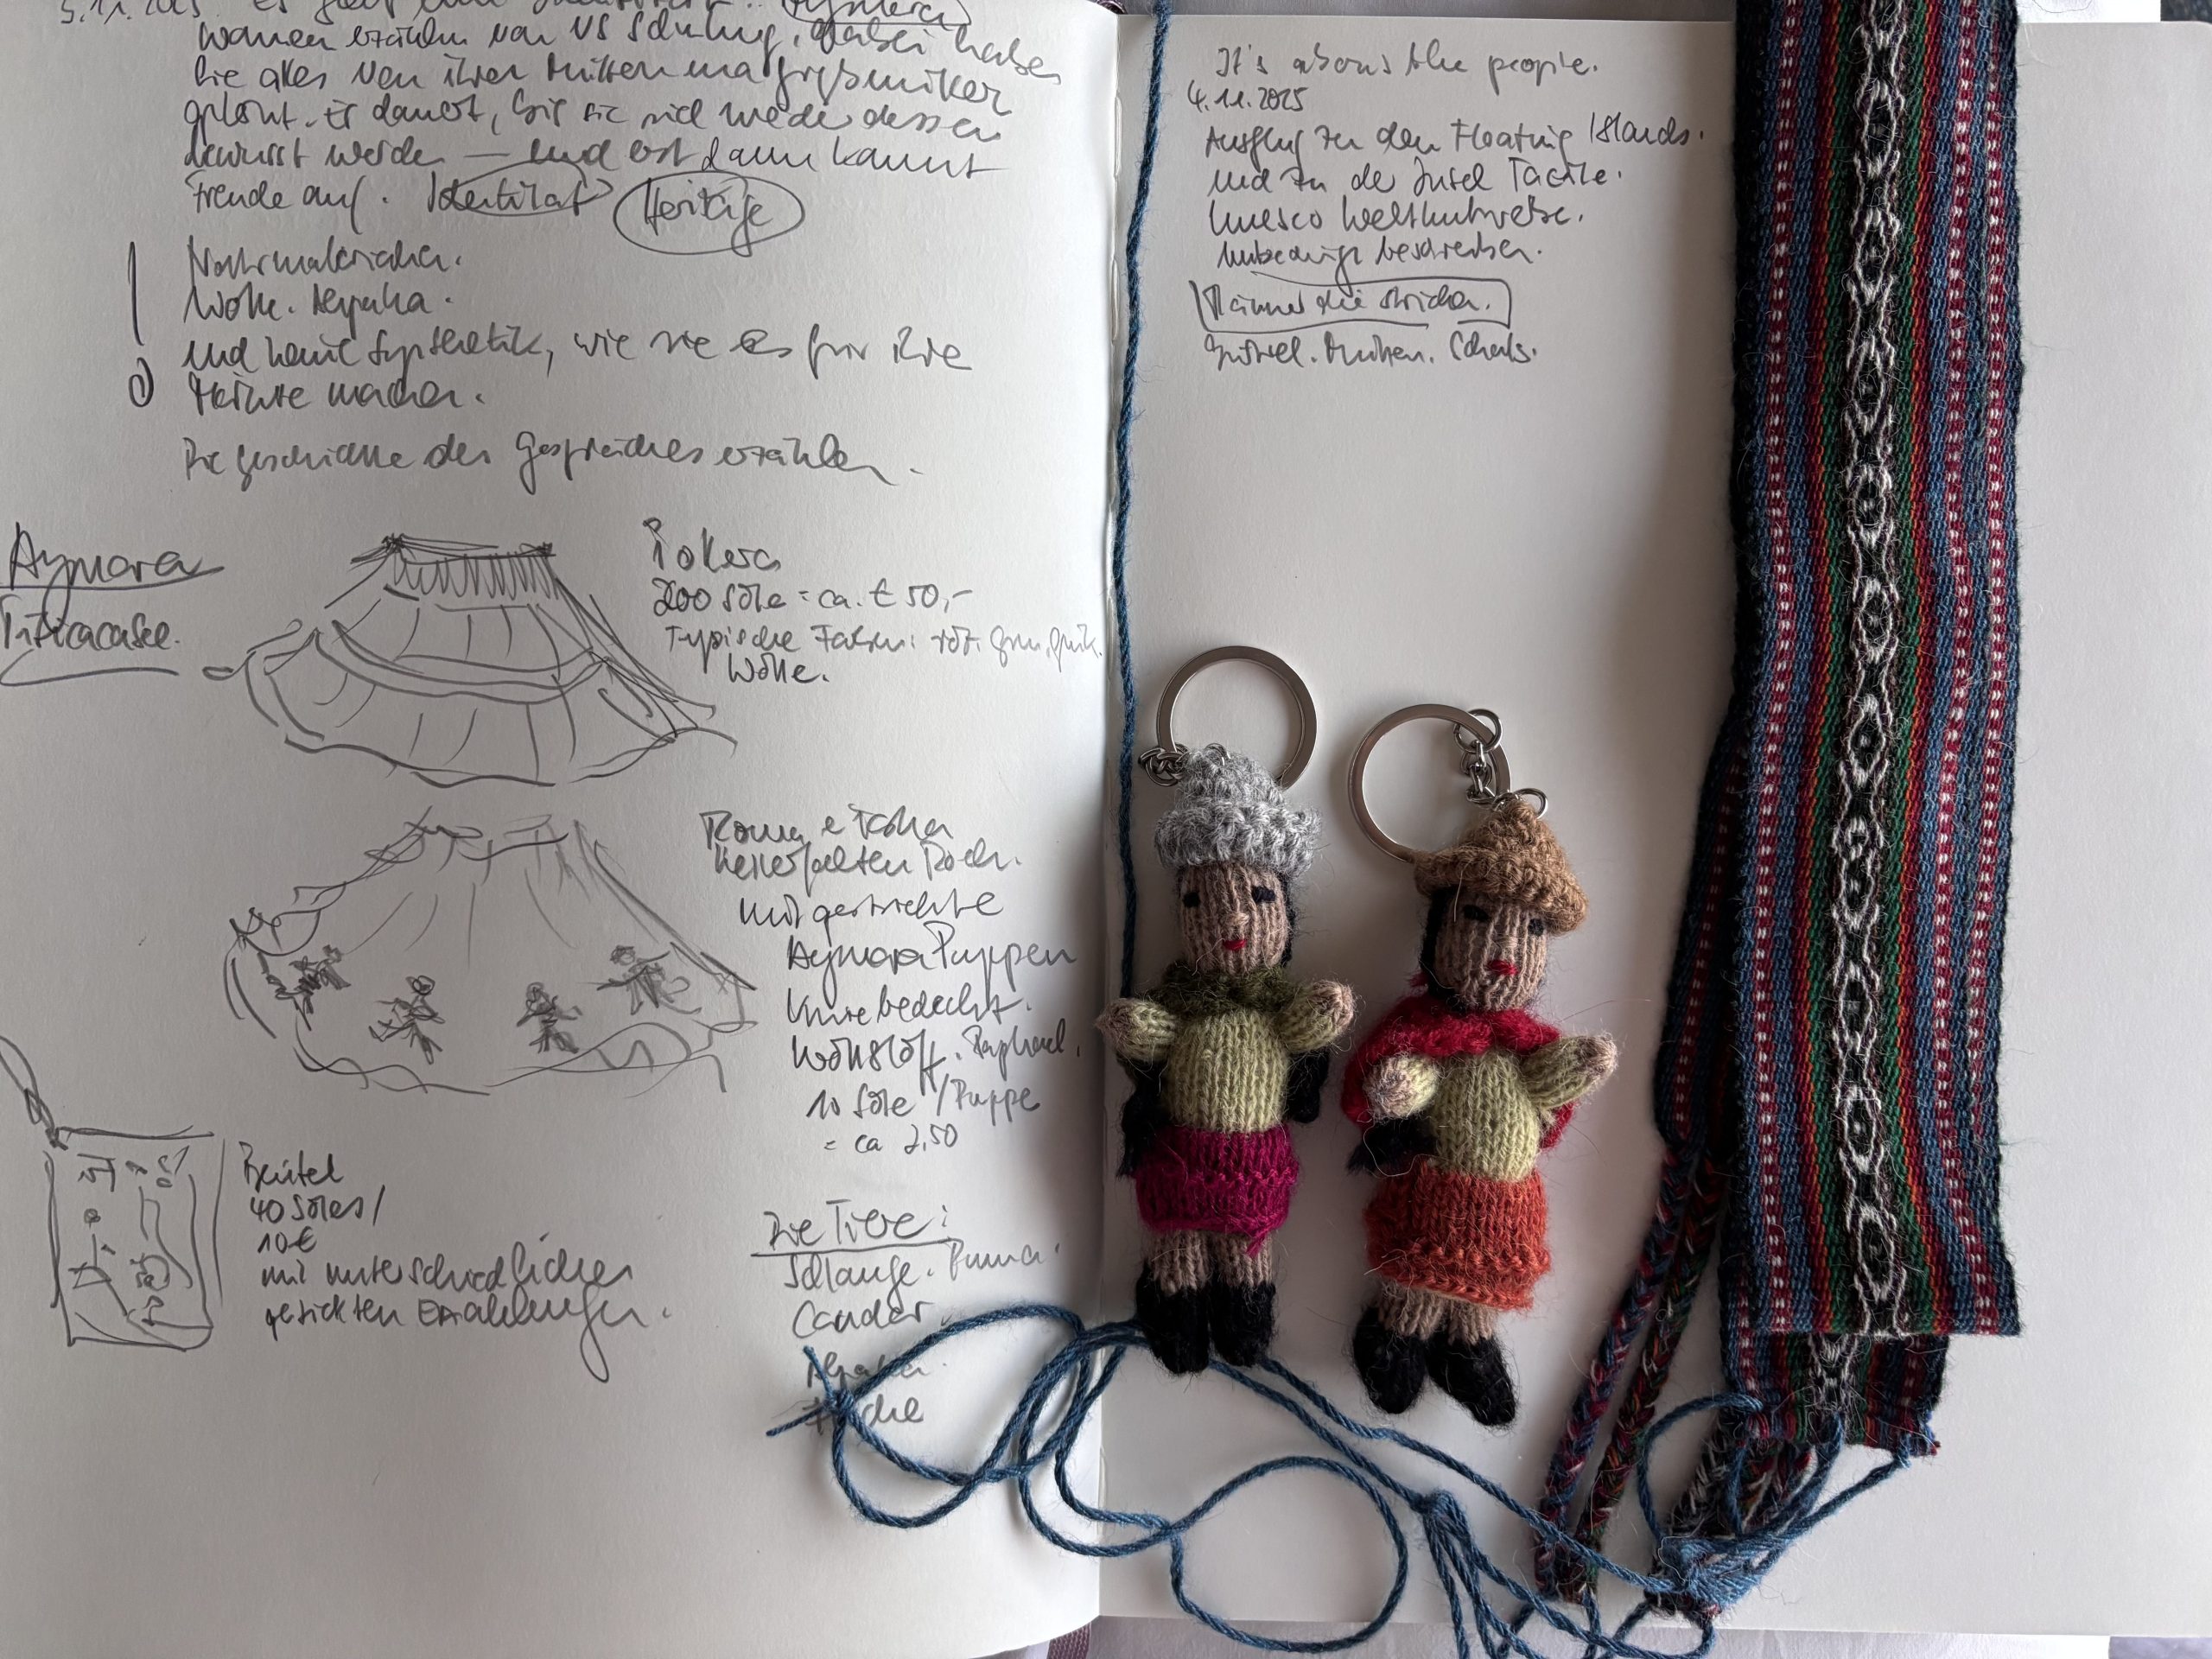 5.11.2025 es
erzählen von US
sie alles von ihren Müttern
gelernt. Es dauert, bis sie sich wieder dessen
bewusst werden — und erst dann kommt
Freude auf. Identität Heritage
Naturmaterialien.
Wolle. Alpaka.
und keine Synthetik, wie sie es für ihre
Märkte machen.
Die Geschichte des Gespräches erzählen.
Aymara
Titicacasee.
Pollera
200 Sole = ca. € 50,-
Typische Farben: rot. grün,
Wolle.
Kellerfalten Rock.
mit gestrickte
Aymara Puppen
Knie bedeckt.
Wollstoff.
10 Sole / Puppe
= ca 2,50
Beutel
40 Soles /
10 €
mit unterschiedlichen
gestickten Erzählungen.
Die Tiere:
Schlange. Puma.
Condor
Alpaka
It's about the people.
4.11.2025
Ausflug zu den Floating Islands.
und zu der Insel Tacile.
Unesco Weltkulturerbe.
unbedingt beschreiben.
Männer die stricken.
Gürtel. Mützen. Schals.